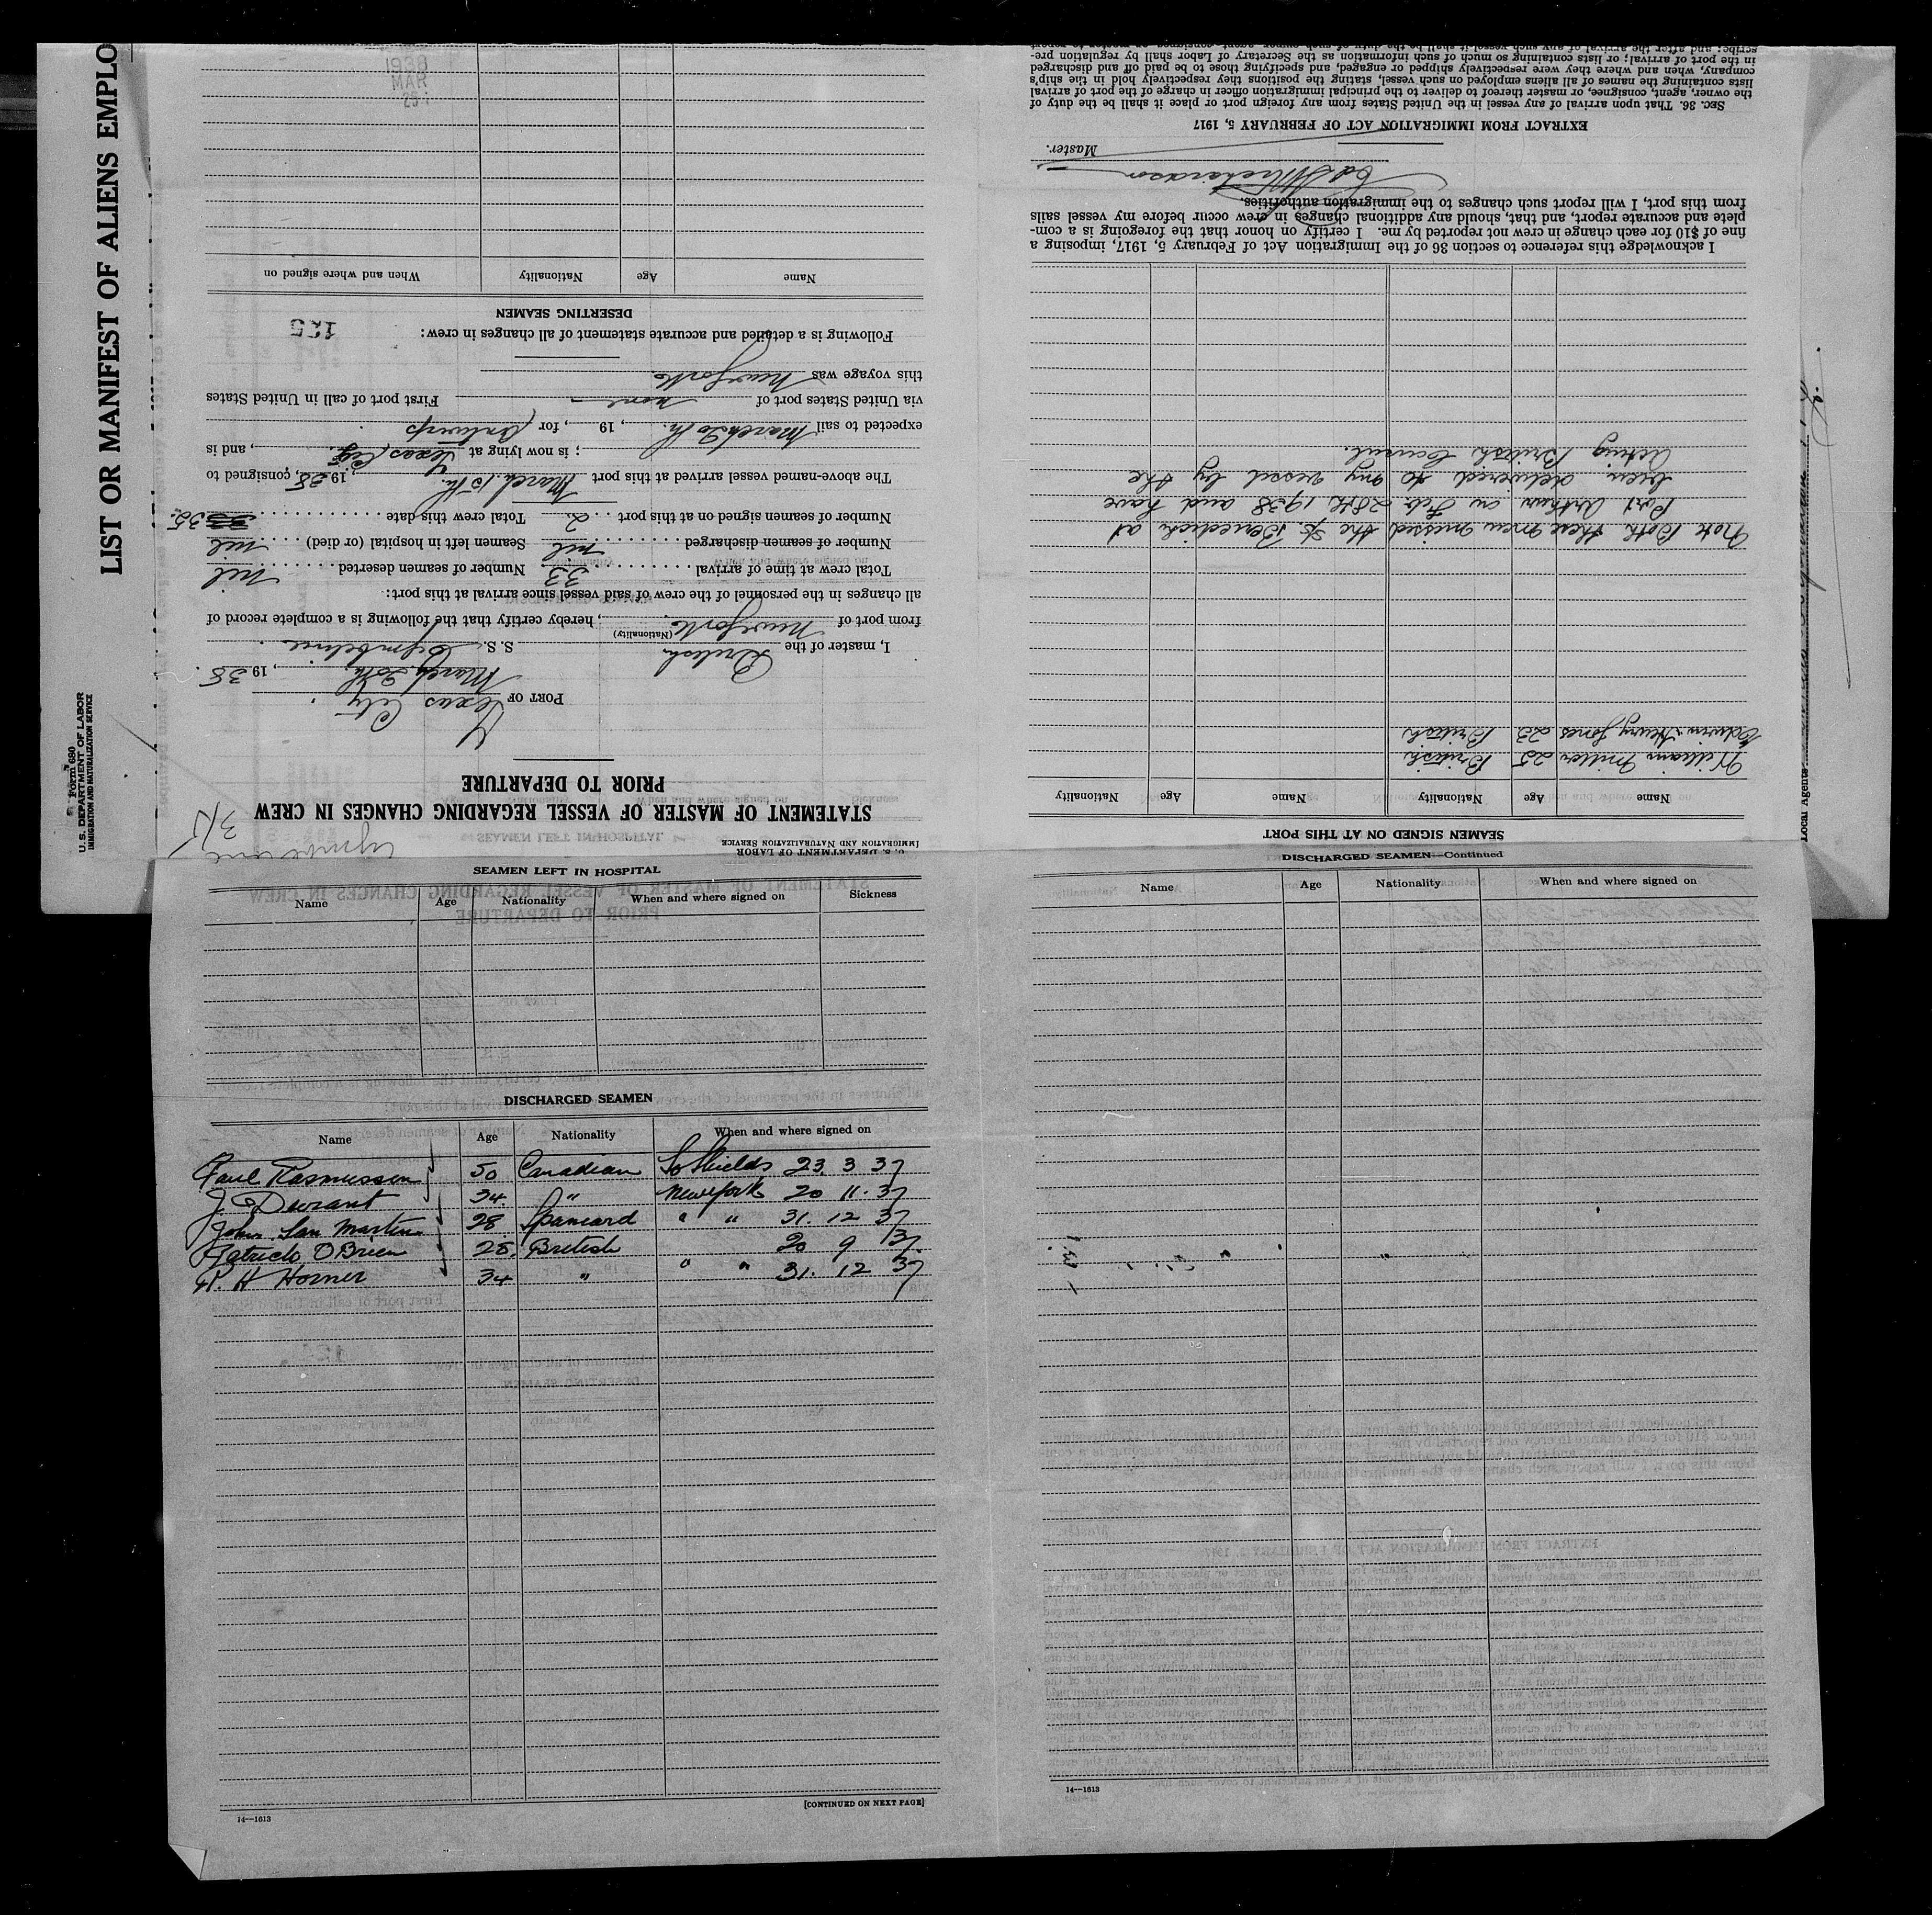 LIST OR MANIFEST OF ALIENS EMPLO
Form 680
U. S. DEPARTMENT OF LABOR
IMMIGRATION AND NATURALIZATION SERVICE
U. S. DEPARTMENT OF LABOR
IMMIGRATION AND NATURALIZATION SERVICE
STATEMENT OF MASTER OF VESSEL REGARDING CHANGES IN CREW
PRIOR TO DEPARTURE
PORT OF Texas City
March 20th, 1938
I, master of the British S. S. Cymbeline
(Nationality)
from port of New York, hereby certify that the following is a complete record of
all changes in the personnel of the crew of said vessel since arrival at this port:
Total crew at time of arrival 33 Number of seamen deserted nil
Number of seamen discharged nil Seamen left in hospital (or died) nil
Number of seamen signed on at this port 2 Total crew this date 35
The above-named vessel arrived at this port March 15th, 1938, consigned to
; is now lying at Texas City, and is
expected to sail March 20th, 19 , for Antwerp
via United States port of none First port of call in United States
this voyage was New York
Following is a detailed and accurate statement of all changes in crew:
125
DESERTING SEAMEN
Name Age Nationality When and where signed on
1938
MAR
SEAMEN SIGNED ON AT THIS PORT
Name Age Nationality Name Age Nationality
William Miller 25 British
Edwin Henry Jones 23 British
Note Both these men missed the St. Benedict at
Port Arthur on Feb 28th 1938 and have
been delivered to my vessel by the
Acting British Consul.
I acknowledge this reference to section 36 of the Immigration Act of February 5, 1917, imposing a
fine of $10 for each change in crew not reported by me. I certify on honor that the foregoing is a com-
plete and accurate report, and that, should any additional changes in crew occur before my vessel sails
from this port, I will report such changes to the immigration authorities.
Master.
EXTRACT FROM IMMIGRATION ACT OF FEBRUARY 5, 1917
SEC. 36. That upon arrival of any vessel in the United States from any foreign port or place it shall be the duty of
the owner, agent, consignee, or master thereof to deliver to the principal immigration officer in charge of the port of arrival
lists containing the names of all aliens employed on such vessel, stating the positions they respectively hold in the ship's
company, when and where they were respectively shipped or engaged, and specifying those to be paid off and discharged
in the port of arrival; or lists containing so much of such information as the Secretary of Labor shall by regulation pre-
scribe; and after the arrival of any such vessel it shall be the duty of such owner, agent, consignee, or master to report
Local Agents
SEAMEN LEFT IN HOSPITAL
Name Age Nationality When and where signed on Sickness
DISCHARGED SEAMEN
Name Age Nationality When and where signed on
Paul Rasmussen 50 Canadian So Shields 23. 3 37
J. Durant 24 " New York 20 11. 37
John San Martin 28 Spaniard " " 31. 12 37
Patrick O Brien 25. British 20 9 37.
H Horner 34 " " " 31. 12 37
[CONTINUED ON NEXT PAGE]
14—1613
DISCHARGED SEAMEN—Continued
Name Age Nationality When and where signed on
14—1613